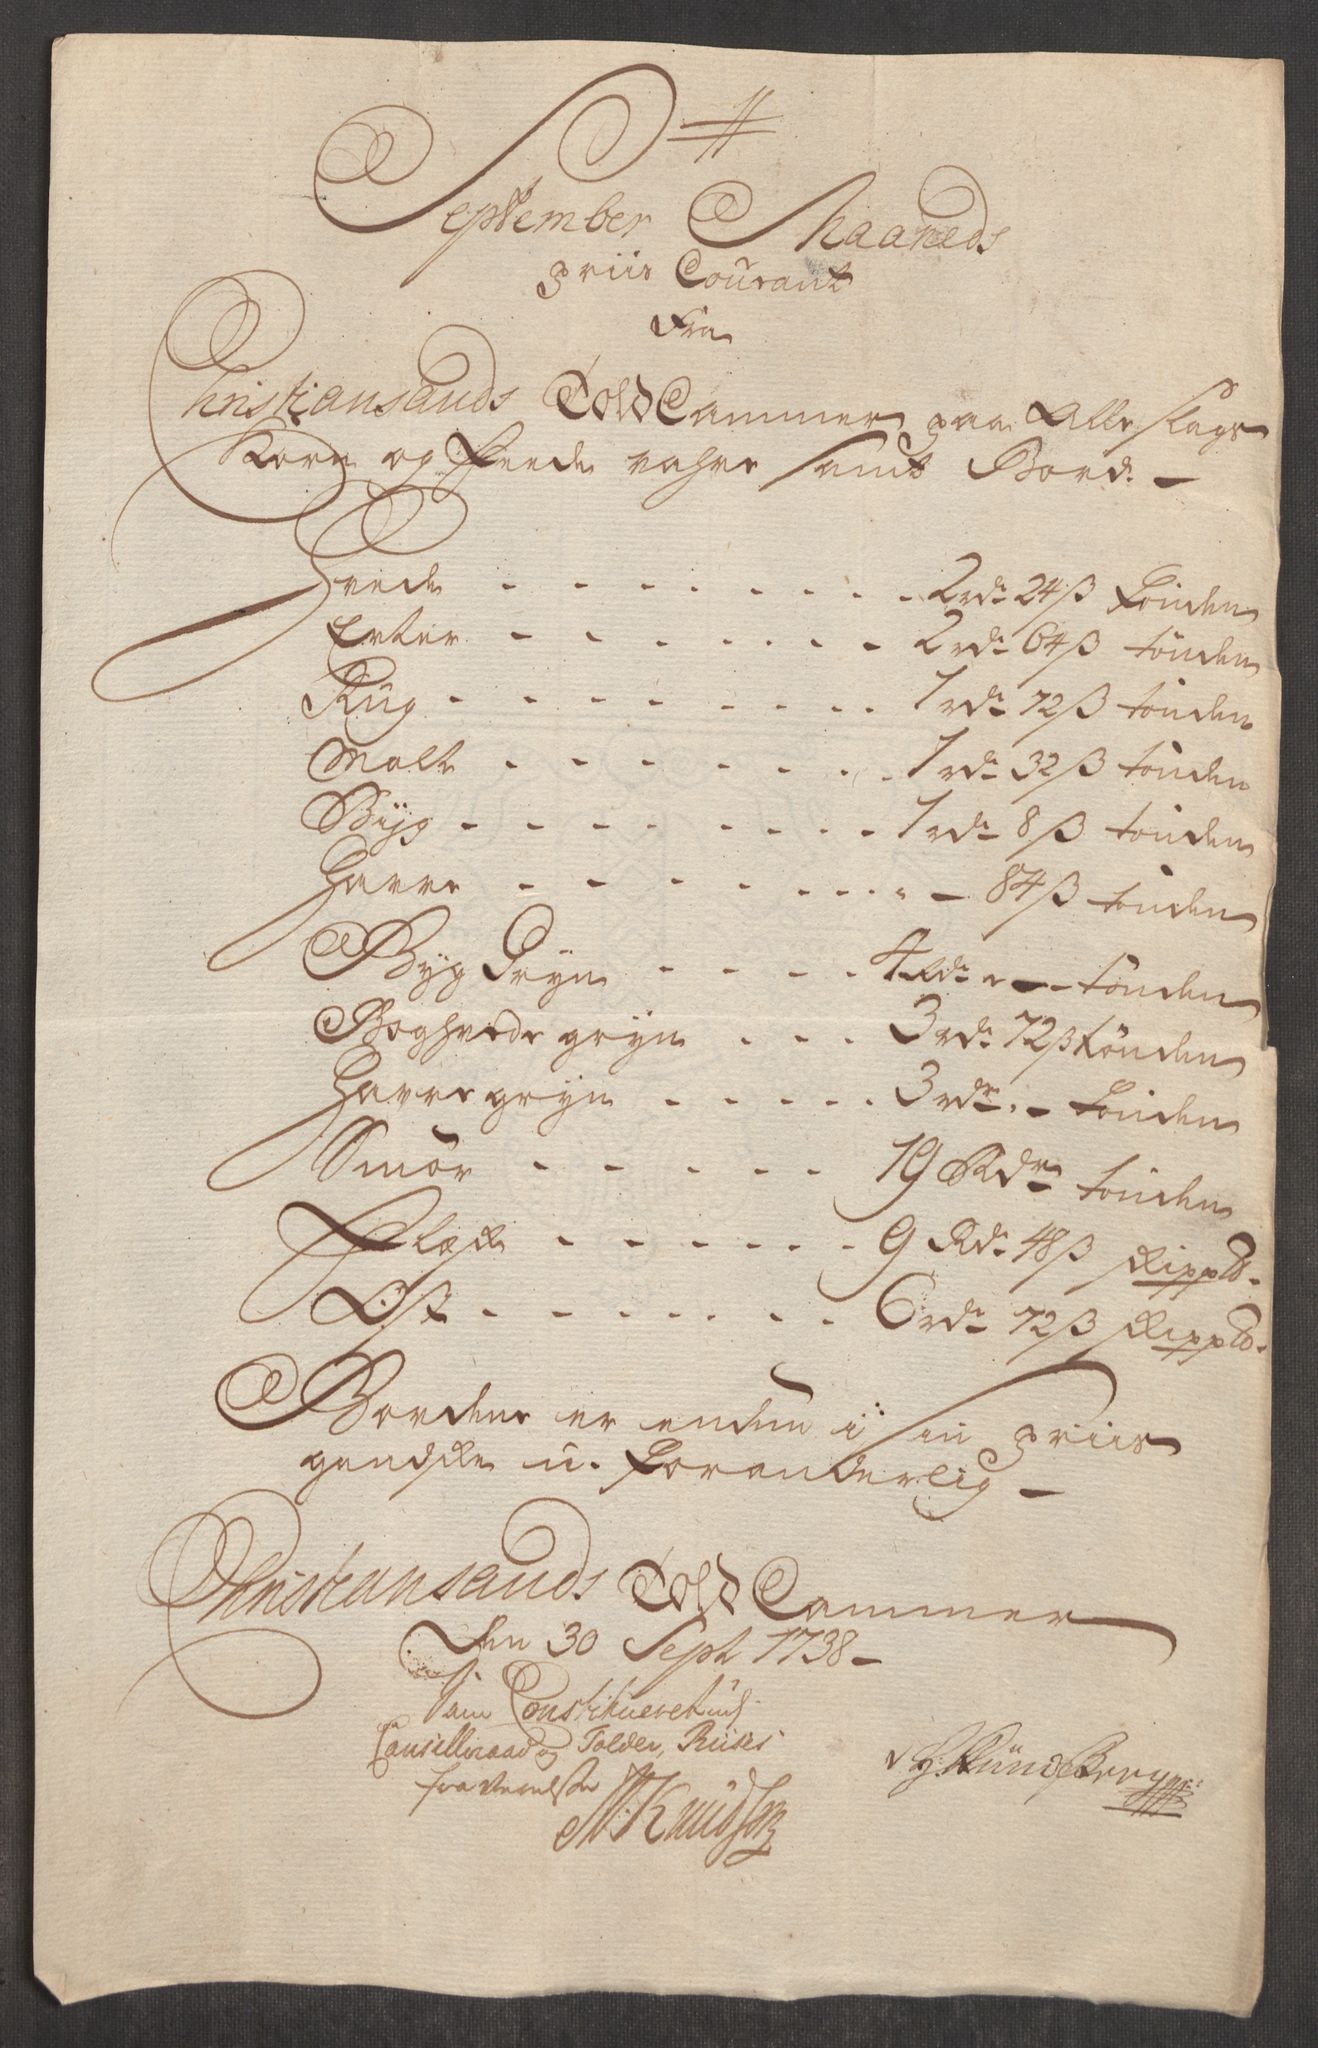 September Maaneds
Priis Courant
Fra
Christiansands Told Cammer paa Alle slags
Korn og Feede vahre samt Bord. -
Hvede - - - - - - - 2 rd: 24 ß Tönden
Erter - - - - - - - 2 rd: 64 ß tönden
Rug - - - - - - - - 1 rd: 72 ß tönden
Malt - - - - - - - 1 rd: 32 ß tönden
Byg - - - - - - - - 1 rd: 8 ß tönden
Havre - - - - - - - - 84 ß tönden
Byg Gryn - - - - 4 Rd: " - tönden
Boghvede gryn - - - 3 rd: 72 ß tönden
Havre gryn - - - - - 3 rdr. - Tönden
Smör - - - - - 19 Rdr tönden
Flæsk - - - - - - 9 Rd: 48 ß Skippd.
Ost - - - - - - - 6 rd: 72 ß Skippd.
Bordene er enden i sin priis
gandske u-foranderlig -
Christiansands Told Cammer
Den 30 Sept 1738 -
Som Constitueret udi
Cancelliraad og Tolder, Riises
fraværelse
M: Knudsen